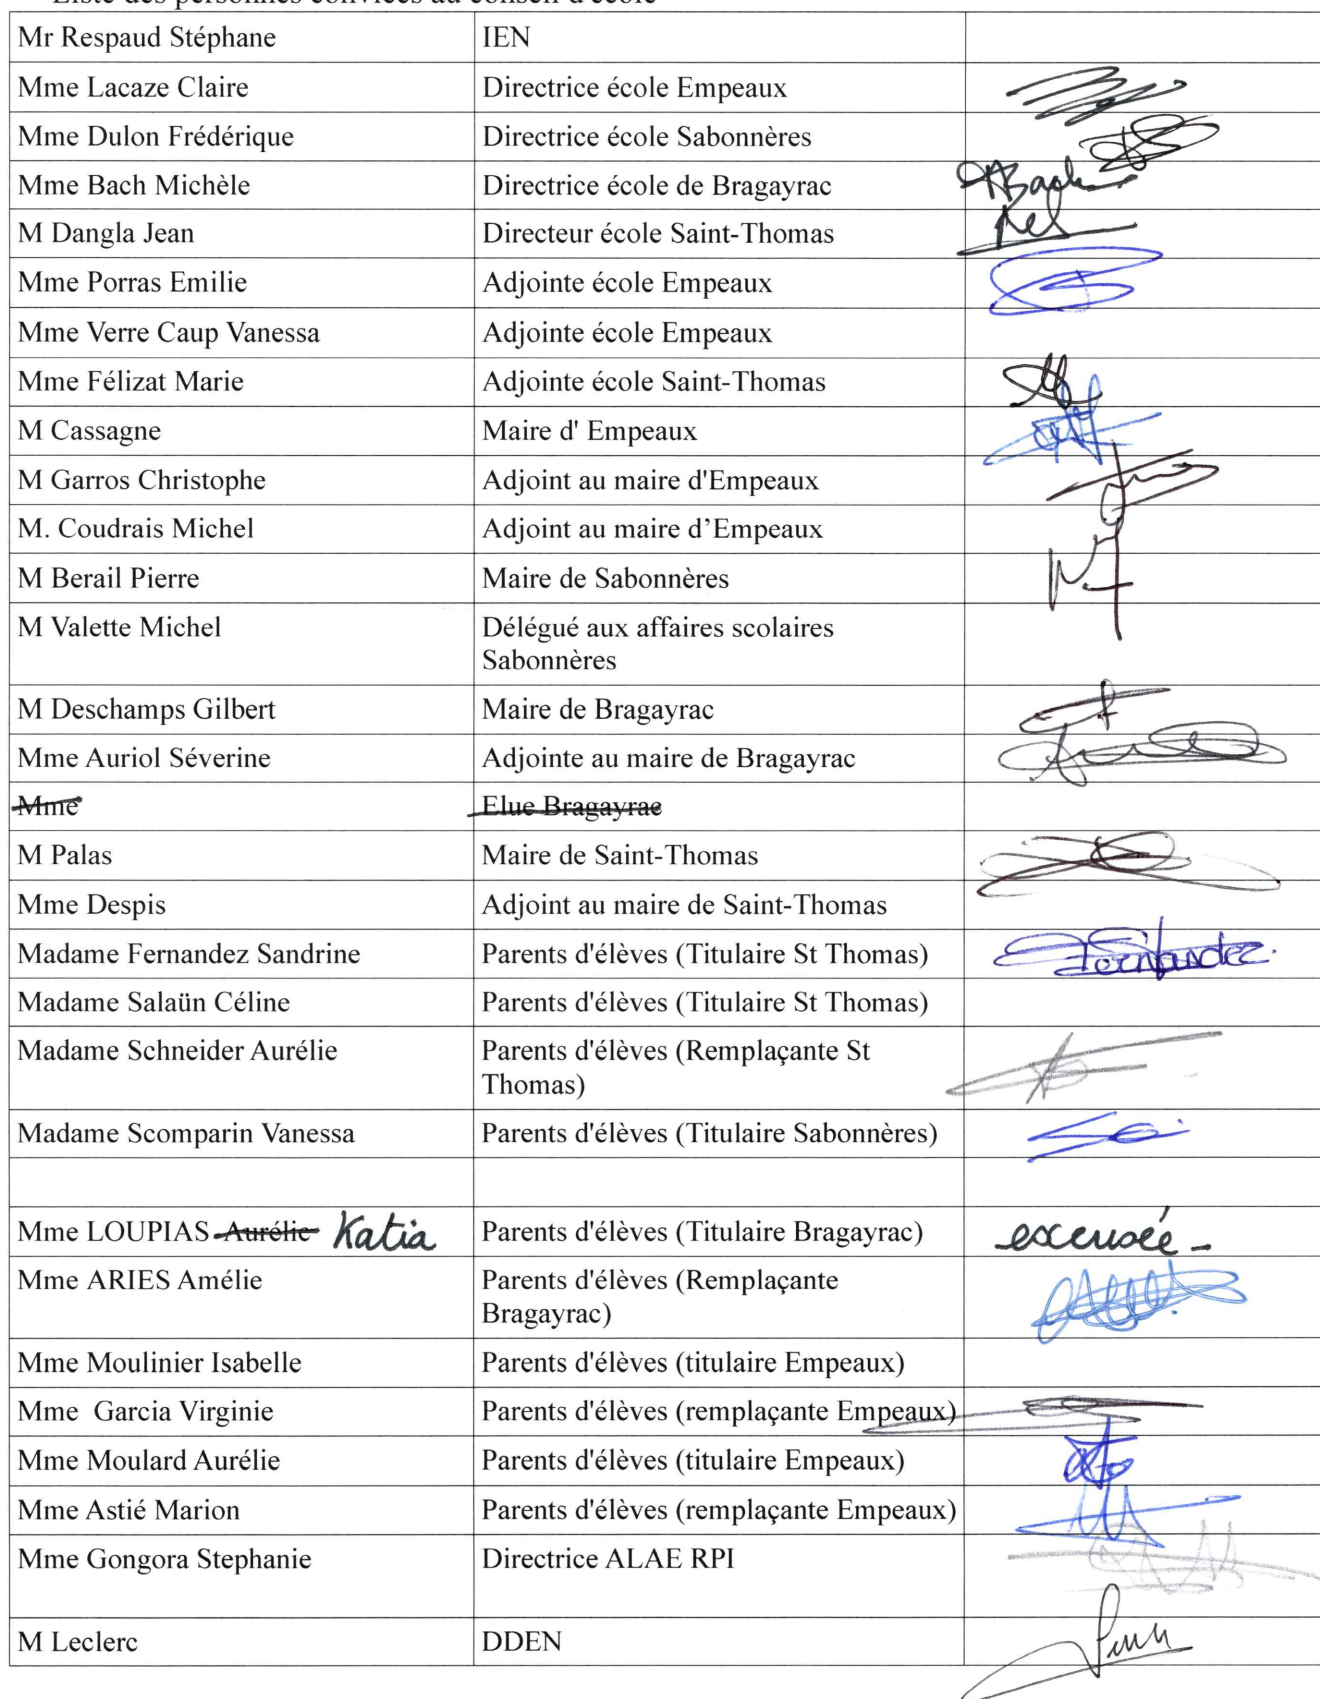 Liste des personnes conviées au conseil d'école
Mr Respaud Stéphane IEN
Mme Lacaze Claire Directrice école Empeaux
Mme Dulon Frédérique Directrice école Sabonnères
Mme Bach Michèle Directrice école de Bragayrac Bach
M Dangla Jean Directeur école Saint-Thomas
Mme Porras Emilie Adjointe école Empeaux
Mme Verre Caup Vanessa Adjointe école Empeaux
Mme Félizat Marie Adjointe école Saint-Thomas
M Cassagne Maire d' Empeaux
M Garros Christophe Adjoint au maire d'Empeaux
M. Coudrais Michel Adjoint au maire d’Empeaux
M Berail Pierre Maire de Sabonnères
M Valette Michel Délégué aux affaires scolaires
Sabonnères
M Deschamps Gilbert Maire de Bragayrac
Mme Auriol Séverine Adjointe au maire de Bragayrac
Mme Elue Bragayrac
M Palas Maire de Saint-Thomas
Mme Despis Adjoint au maire de Saint-Thomas
Madame Fernandez Sandrine Parents d'élèves (Titulaire St Thomas) Fernandez
Madame Salaün Céline Parents d'élèves (Titulaire St Thomas)
Madame Schneider Aurélie Parents d'élèves (Remplaçante St
Thomas)
Madame Scomparin Vanessa Parents d'élèves (Titulaire Sabonnères)
Mme LOUPIAS Aurélie Katia Parents d'élèves (Titulaire Bragayrac) excusée -
Mme ARIES Amélie Parents d'élèves (Remplaçante
Bragayrac)
Mme Moulinier Isabelle Parents d'élèves (titulaire Empeaux)
Mme Garcia Virginie Parents d'élèves (remplaçante Empeaux)
Mme Moulard Aurélie Parents d'élèves (titulaire Empeaux)
Mme Astié Marion Parents d'élèves (remplaçante Empeaux)
Mme Gongora Stephanie Directrice ALAE RPI
M Leclerc DDEN